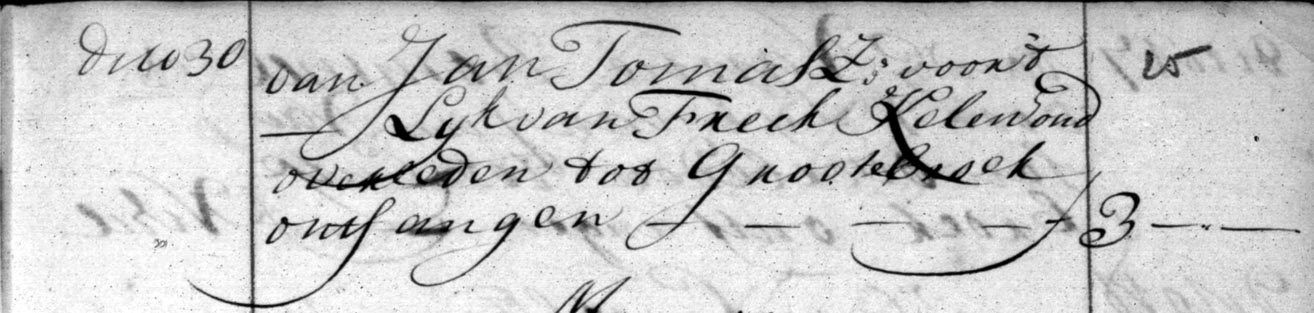 dito 30 van Jan Tomasz: voor't 25
Lyk van Frech Kelewoud
overleden tot Grootebroek
ontfangen — — — — f 3 — . —